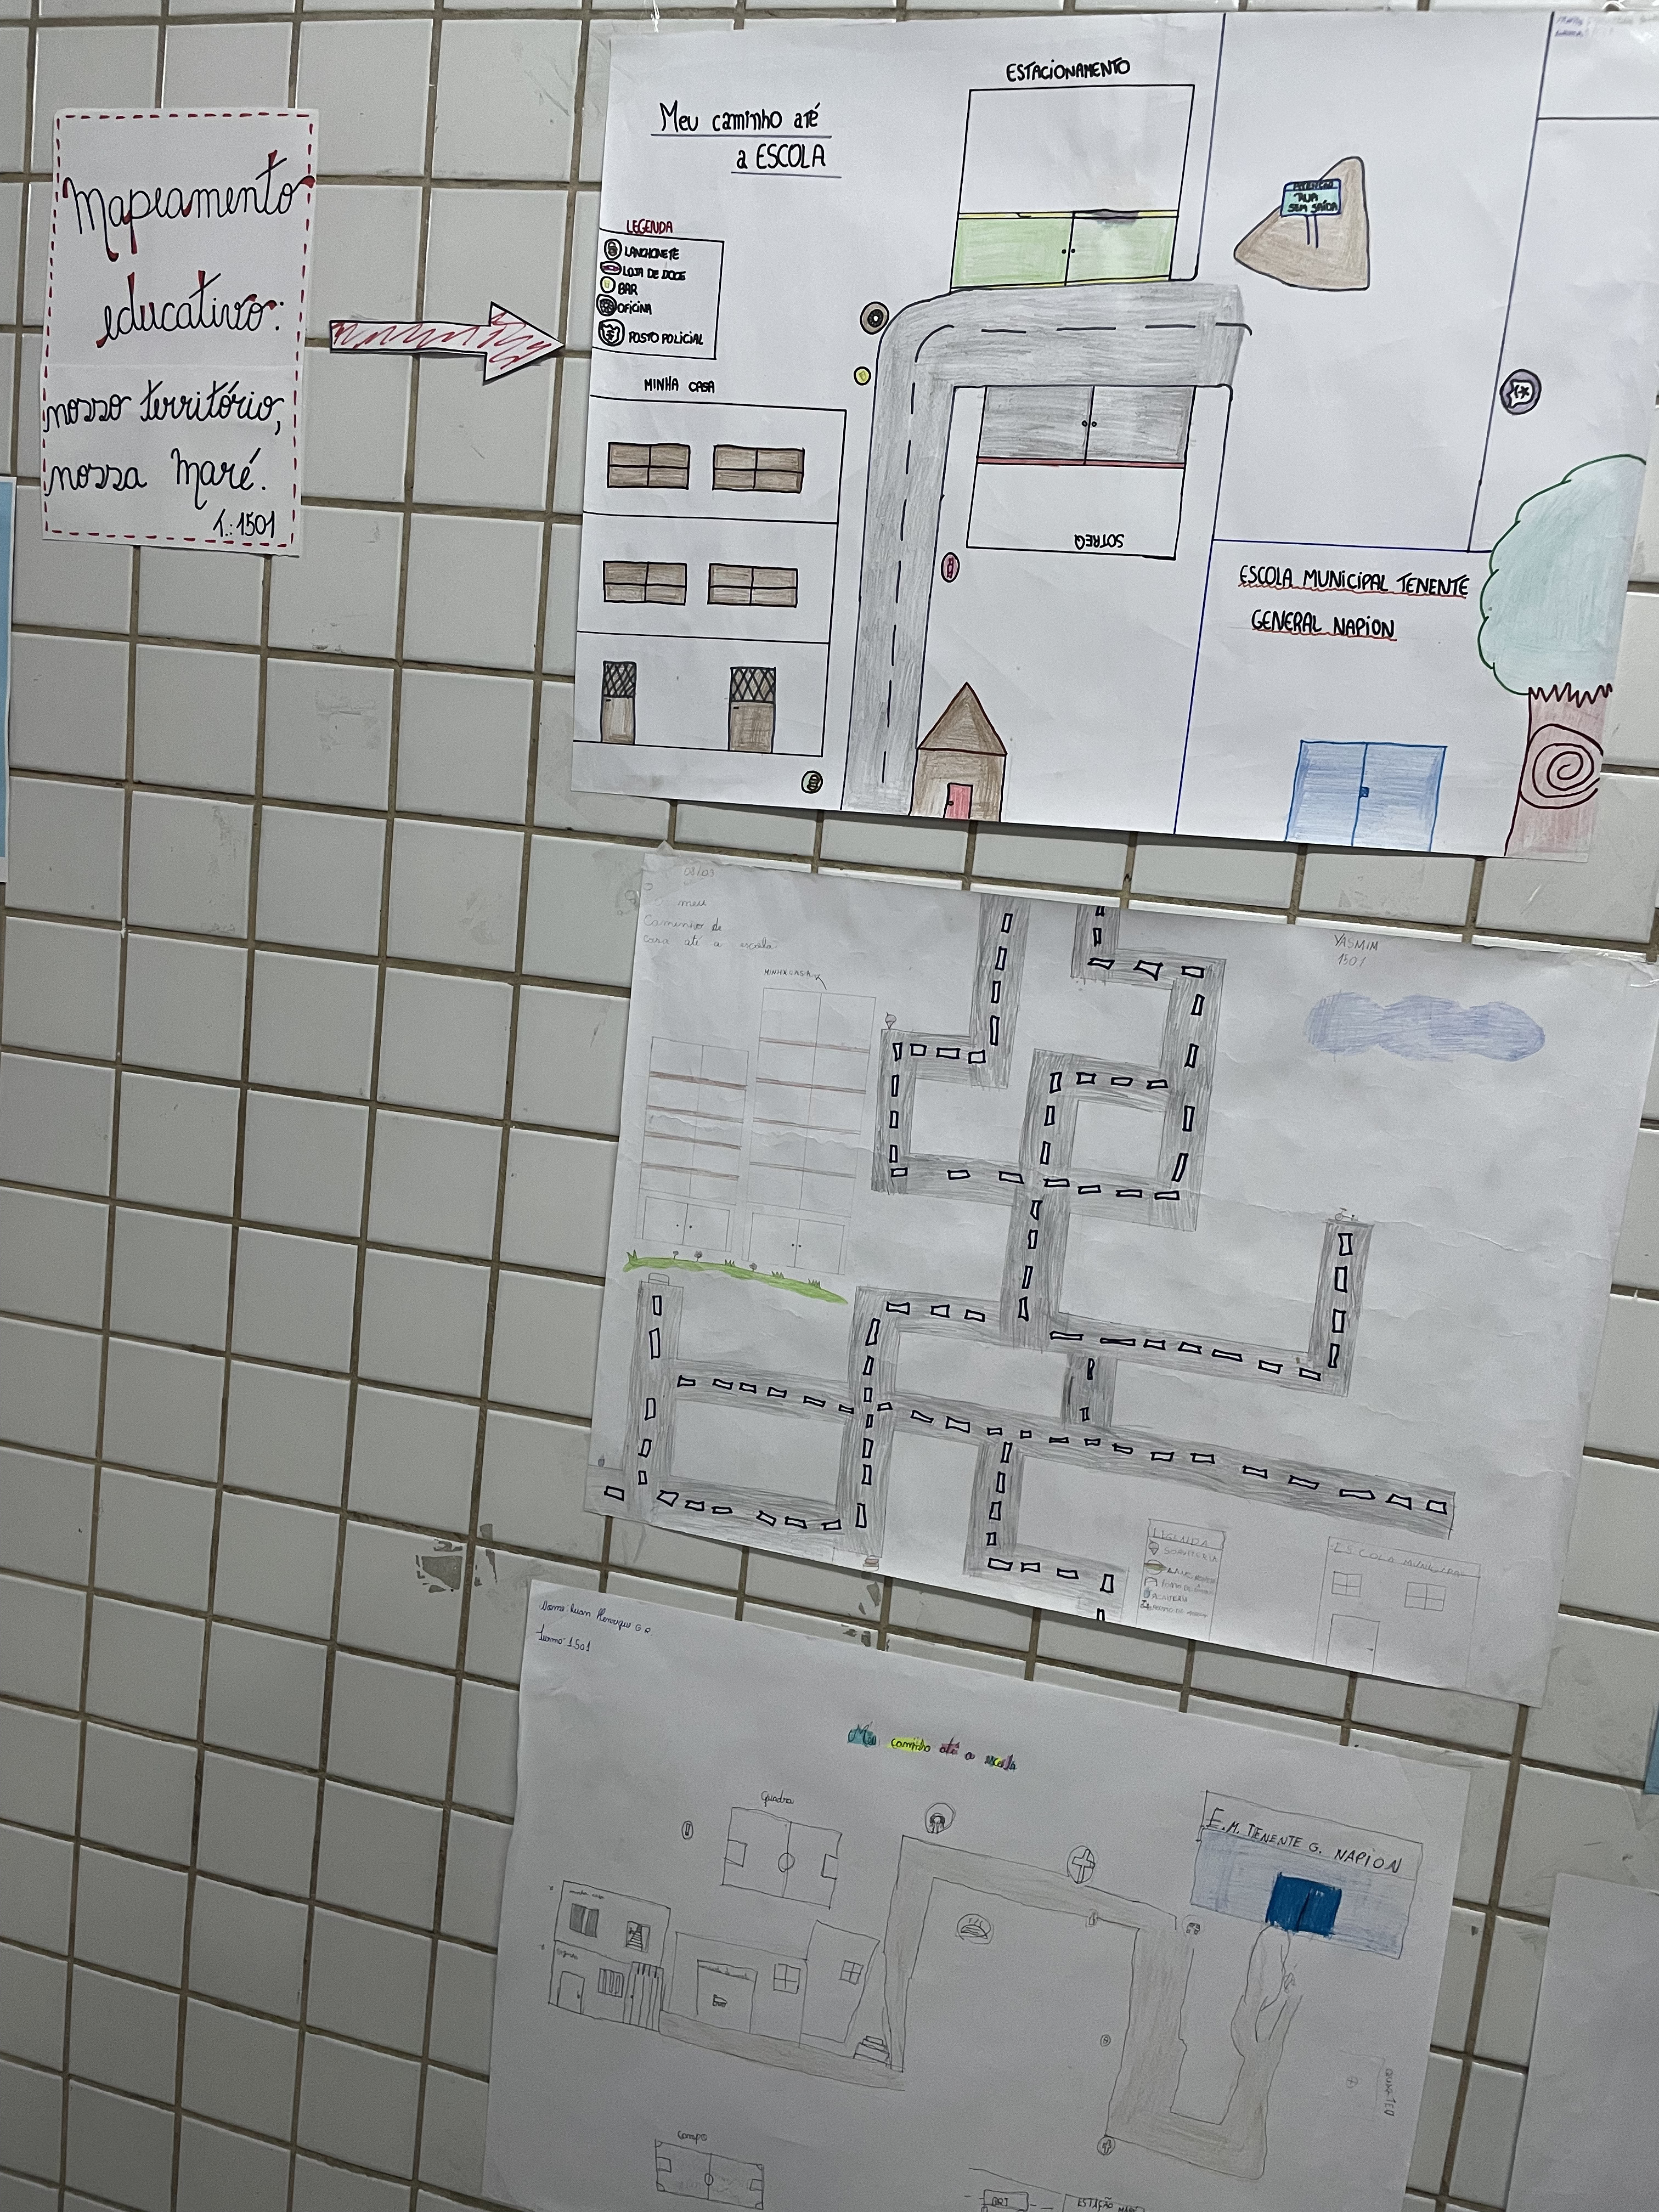 Mapeamento
educativo:
nosso território,
nossa Maré.
T.:1501
Meu caminho até
a ESCOLA
ESTACIONAMENTO
RUA
SEM SAÍDA
LEGENDA
LANCHONETE
LOJA DE DOCE
BAR
OFICINA
POSTO POLICIAL
MINHA CASA
SOTREQ
ESCOLA MUNICIPAL TENENTE
GENERAL NAPION
meu
Caminho de
casa até a escola
MINHA CASA
YASMIM
1501
LEGENDA
SORVETERIA
ESCOLA MUNICIPAL
Nome: Luan Henrique G R
Turma: 1501
Meu caminho até a escola
Quadra
E.M. TENENTE G. NAPION
minha casa
Campo
BRT
ESTAÇÃO MARÉ